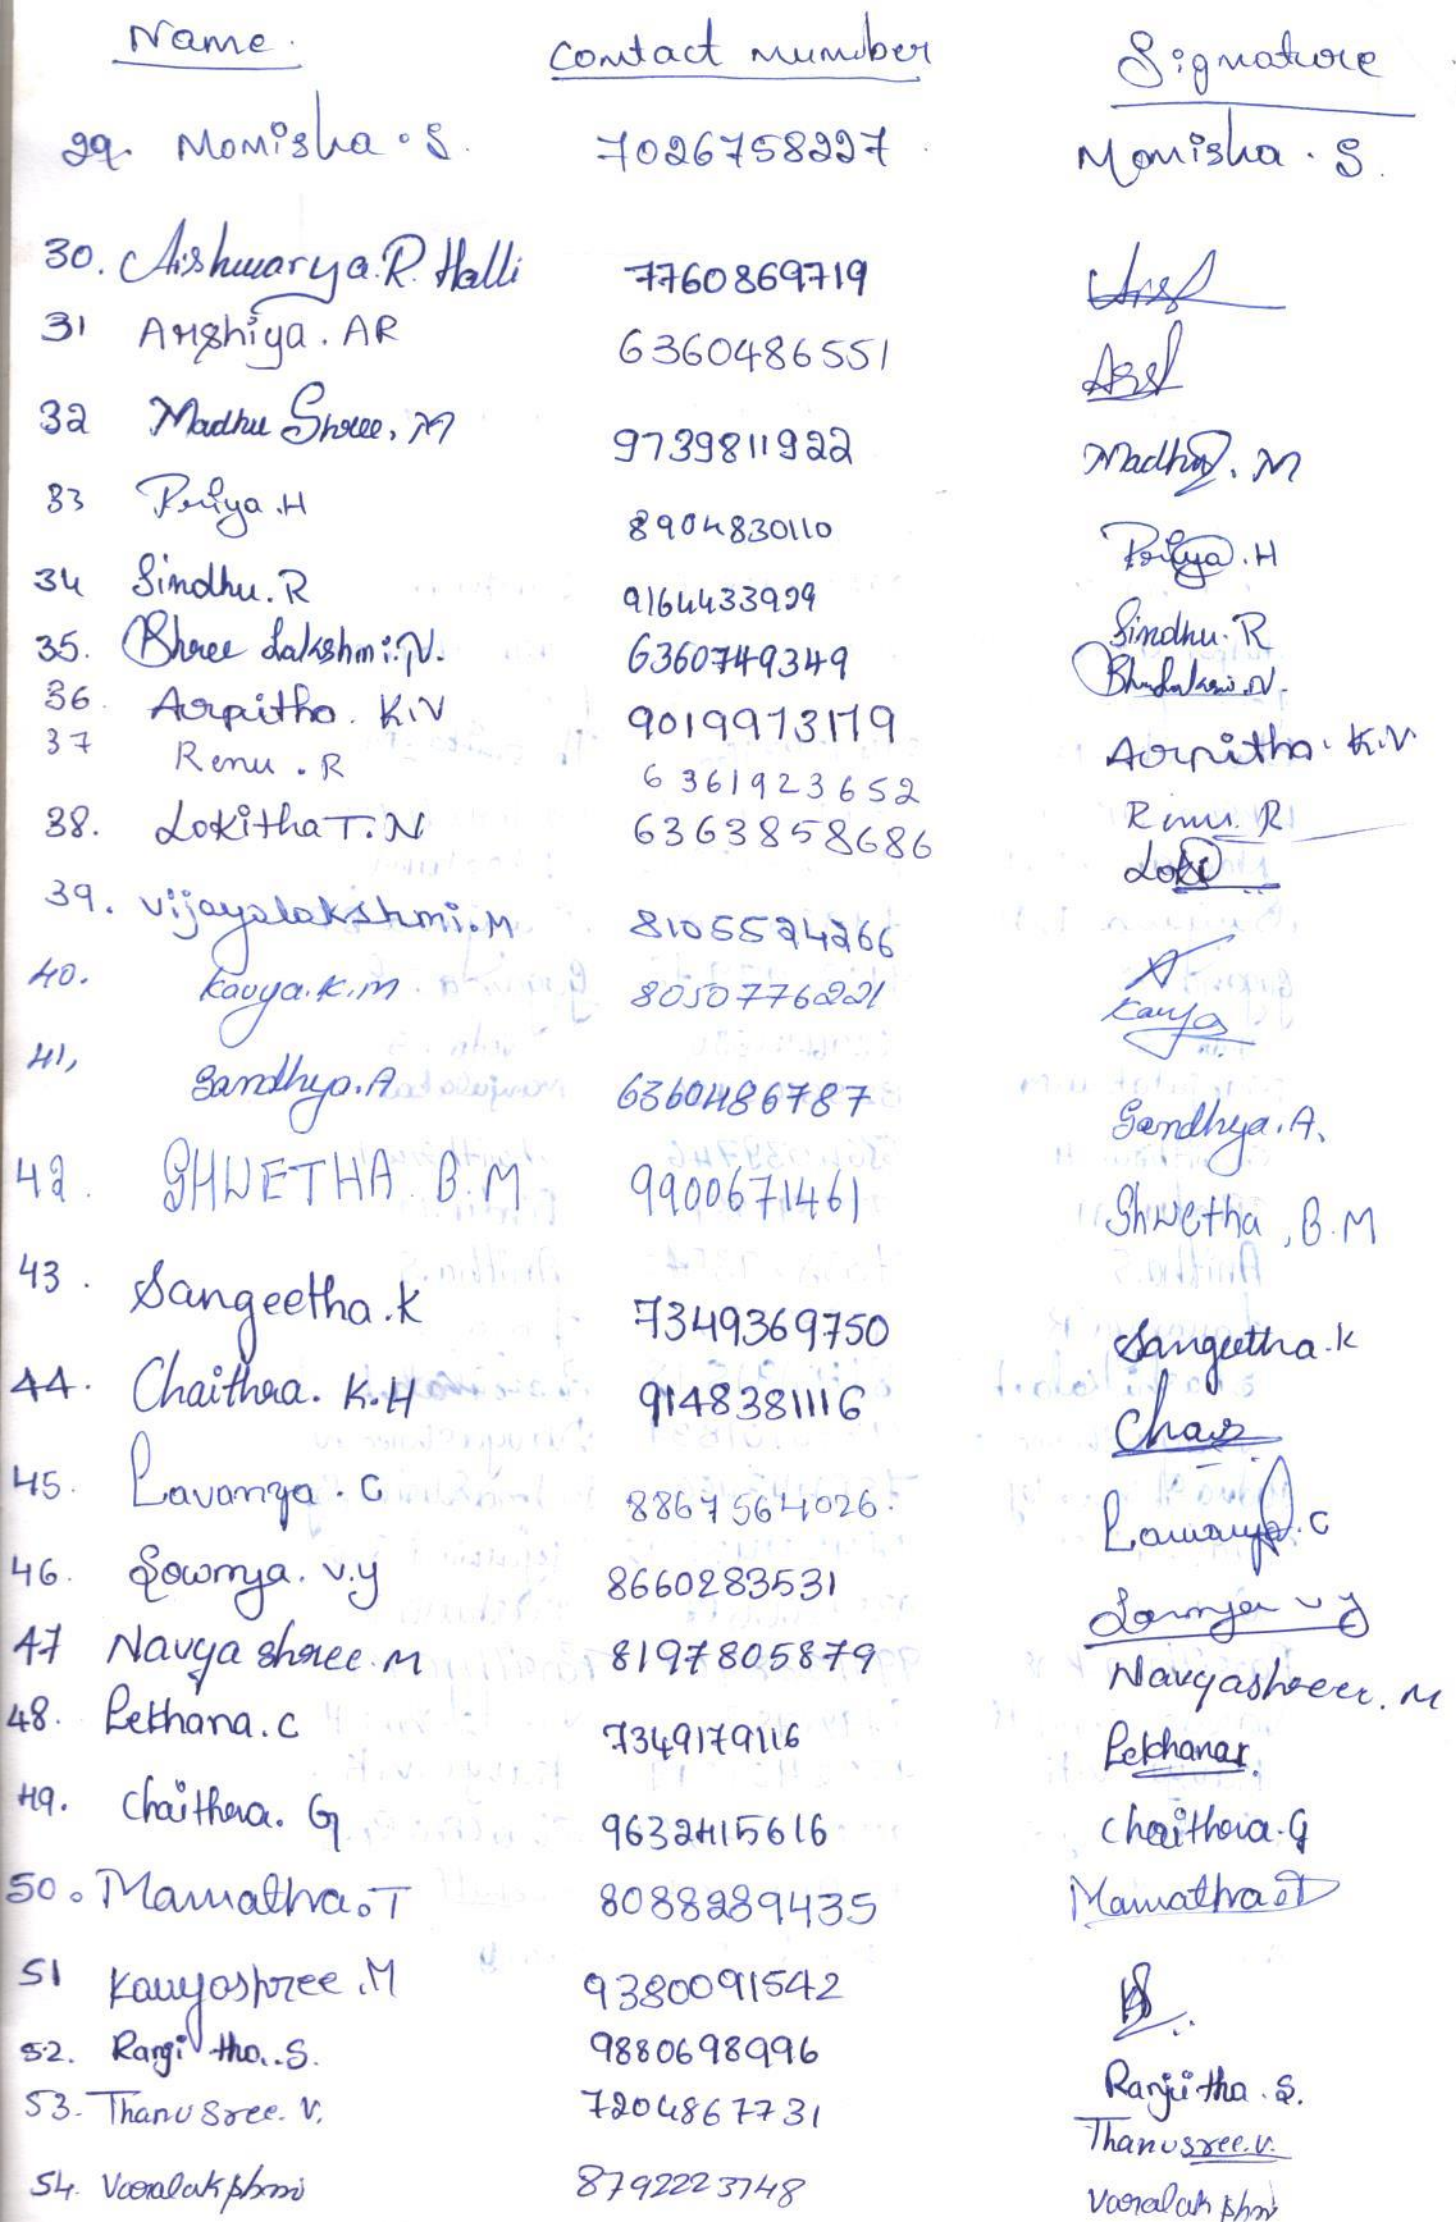 Name. Contact number Signature
29. Monisha.S. 7026758227 Monisha.S.
30. Aishwarya.R.Halli 7760869719
31 Arshiya.AR 6360486551
32 Madhu Shree.M 9739811922 Madhu.M
33 Priya.H 8904830110 Priya.H
34 Sindhu.R 9164433929 Sindhu.R
35. Bhree Lakshmi.N. 6360749349
36. Arpitha.K.V 9019973179 Arpitha.K.V
37 Renu.R 6361923652 Renu.R
38. Lokitha T.N 6363858686 Loki
39. Vijayalakshmi.M 8105524266
40. Kavya.K.m 8050776221 Kavya
41, Sandhya.A 6360486787 Sandhya.A.
42. SHWETHA B.M 9900671461 Shwetha, B.M
43. Sangeetha.K 7349369750 Sangeetha.K
44. Chaithra.K.H 9148381116
45. Lavanya.C 8867564026. Lavanya.C
46. Sowmya.v.y 8660283531 Sowmya v y
47 Navya shree.M 8197805879 Navyashree.M
48. Lekhana.C 7349179116 Lekhana
49. Chaithra.G 9632415616 Chaithra.G
50. Mamatha.T 8088289435 Mamatha.T
51 Kavyashree.M 9380091542
52. Ranjitha.S. 9880698996 Ranjitha.S.
53. Thanusree.V. 7204867731 Thanusree.V.
54. Varalakshmi 8792223748 Varalakshmi